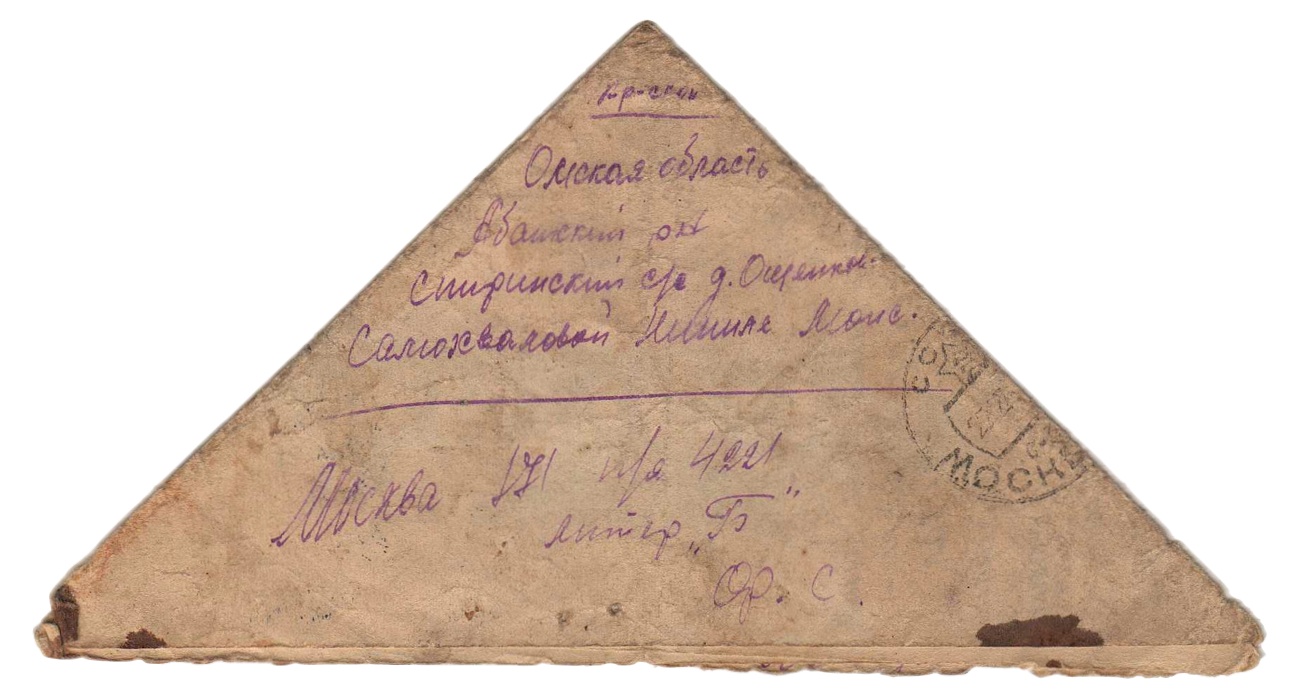 Омская область
Абатский р-н
Спиринский с/с д. Ощепков.
Самохваловой Нинине Моис.
Москва 171 п/я 4221
литер „Б"
Ор. С.
МОСКВ